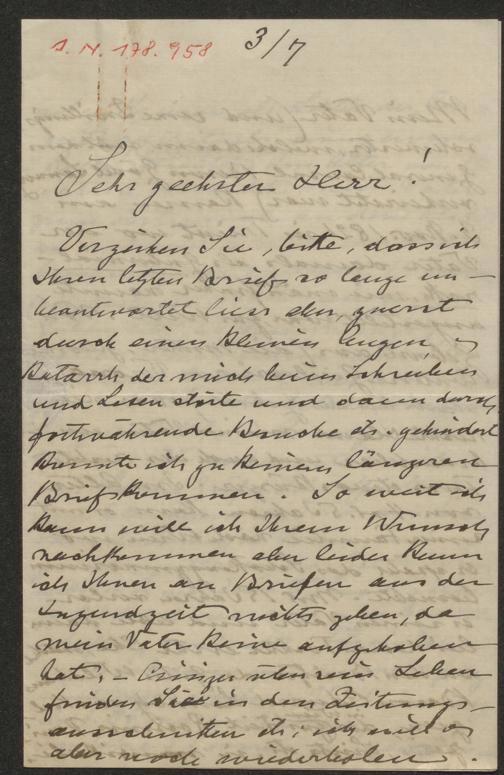 J. N. 178.958
3/7
Sehr geehrter Herr!
Verzeihen Sie, bitte, dass ich
Ihren letzten Brief so lange un-
beantwortet liess aber, zuerst
durch einen kleinen Augen-
Katarrh der mich beim Schreiben
und Lesen störte und dann durch
fortwährende Besuche etc. gehindert
konnte ich zu keinem längeren
Brief kommen. So weit ich
kann will ich Ihrem Wunsch
nachkommen aber leider kann
ich Ihnen an Briefen aus der
Jugendzeit nichts geben, da
mein Vater keine aufgehoben
hat. – Einiges über sein Leben
finden Sie in den Zeitungs-
ausschnitten etc; ich will es
aber noch wiederholen.